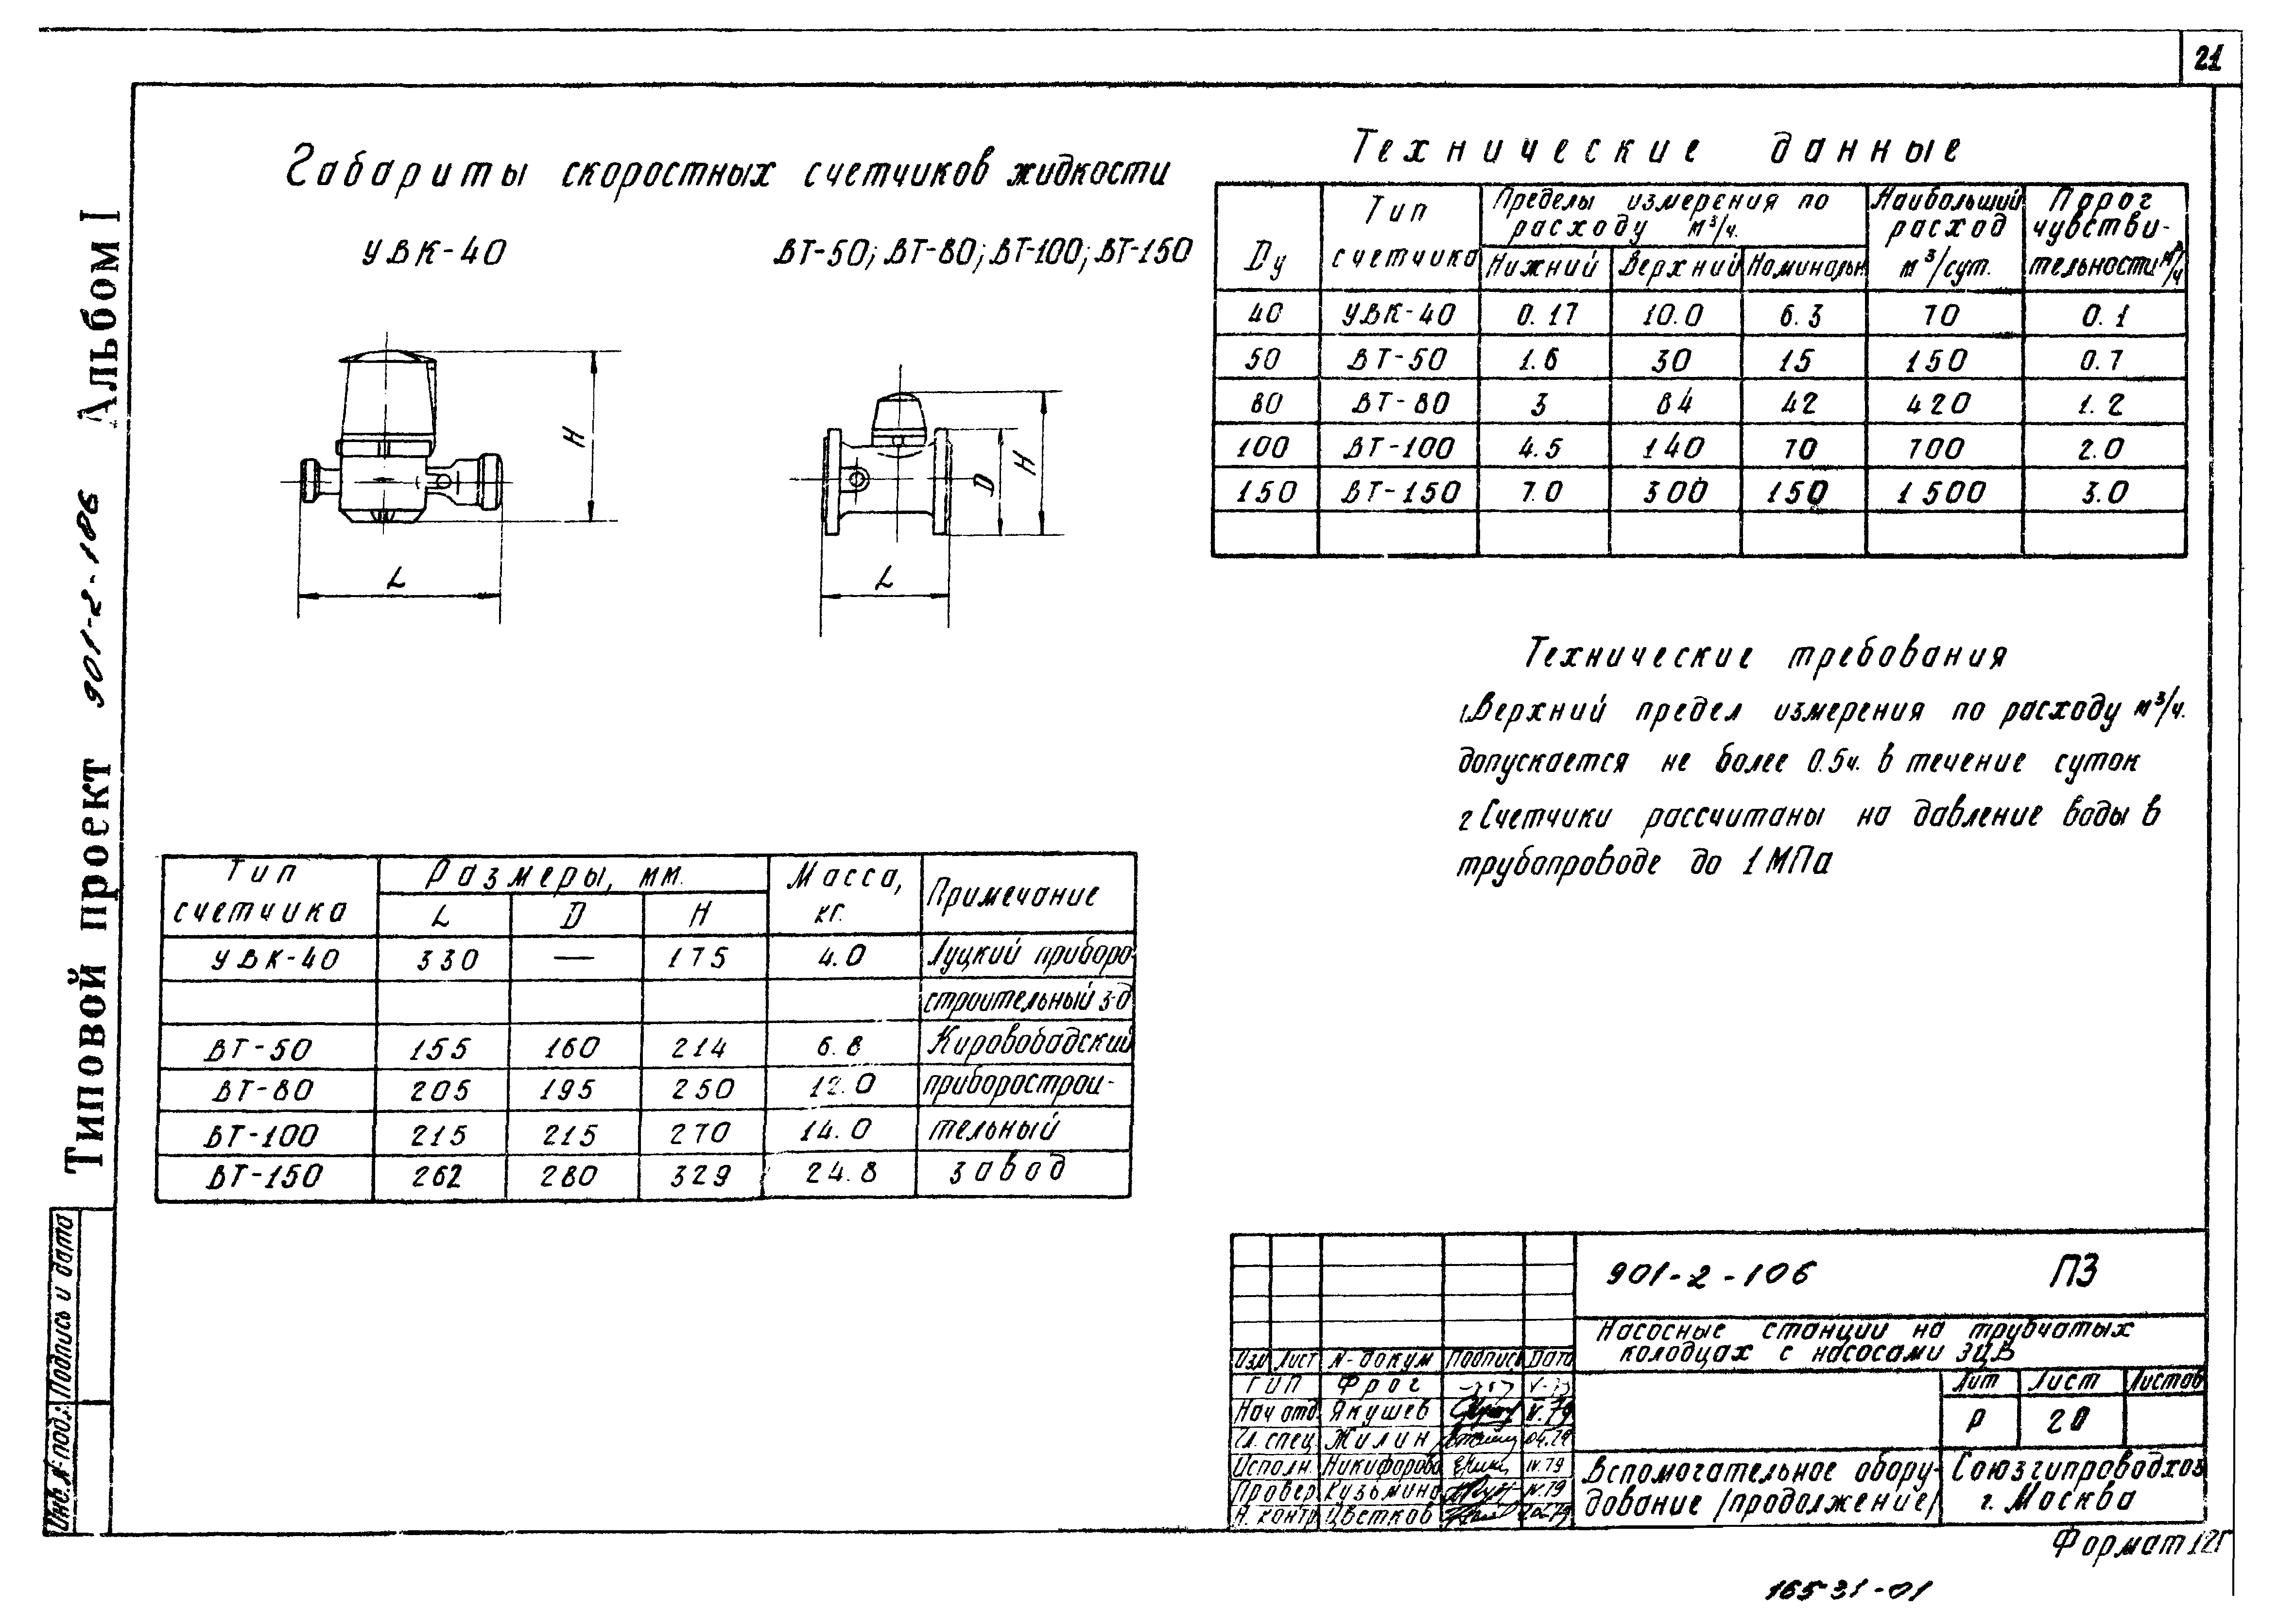 21
Габариты скоростных счетчиков жидкости
УВК-40
ВТ-50; ВТ-80; ВТ-100; ВТ-150
H
L
D
H
L
Технические данные
Dу
Тип счетчика
Пределы измерения по расходу м³/ч.
Нижний Верхний Номинальн
Наибольший расход м³/сут.
Порог чувстви-
тельности м³/ч
40 УВК-40 0.17 10.0 6.3 70 0.1
50 ВТ-50 1.6 30 15 150 0.7
80 ВТ-80 3 84 42 420 1.2
100 ВТ-100 4.5 140 70 700 2.0
150 ВТ-150 7.0 300 150 1500 3.0
Технические требования
1. Верхний предел измерения по расходу м³/ч.
допускается не более 0.5ч. в течение суток
2 Счетчики рассчитаны на давление воды в
трубопроводе до 1 МПа
Тип счетчика
Размеры, мм.
L D H
Масса, кг.
Примечание
УВК-40 330 — 175 4.0 Луцкий приборо-
строительный з-д
ВТ-50 155 160 214 6.8 Кировобадский
ВТ-80 205 195 250 12.0 приборострои-
ВТ-100 215 215 270 14.0 тельный
ВТ-150 262 280 329 24.8 завод
Типовой проект 901-2-106 Альбом I
Инв. № под. Подпись и дата
901-2-106 ПЗ
Насосные станции на трубчатых
колодцах с насосами ЭЦВ
Изм Лист N-докум Подпись Дата
ГИП Фрог
Нач отд. Якушев IV.79
Гл. спец Жилин 04.79
Исполн. Никифорова IV.79
Провер Кузьмина IV.79
Н. контр Цветков
Лит Лист Листов
Р 20
Вспомогательное обору-
дование /продолжение/
Союзгипроводхоз
г. Москва
Формат 12Г
16531-01